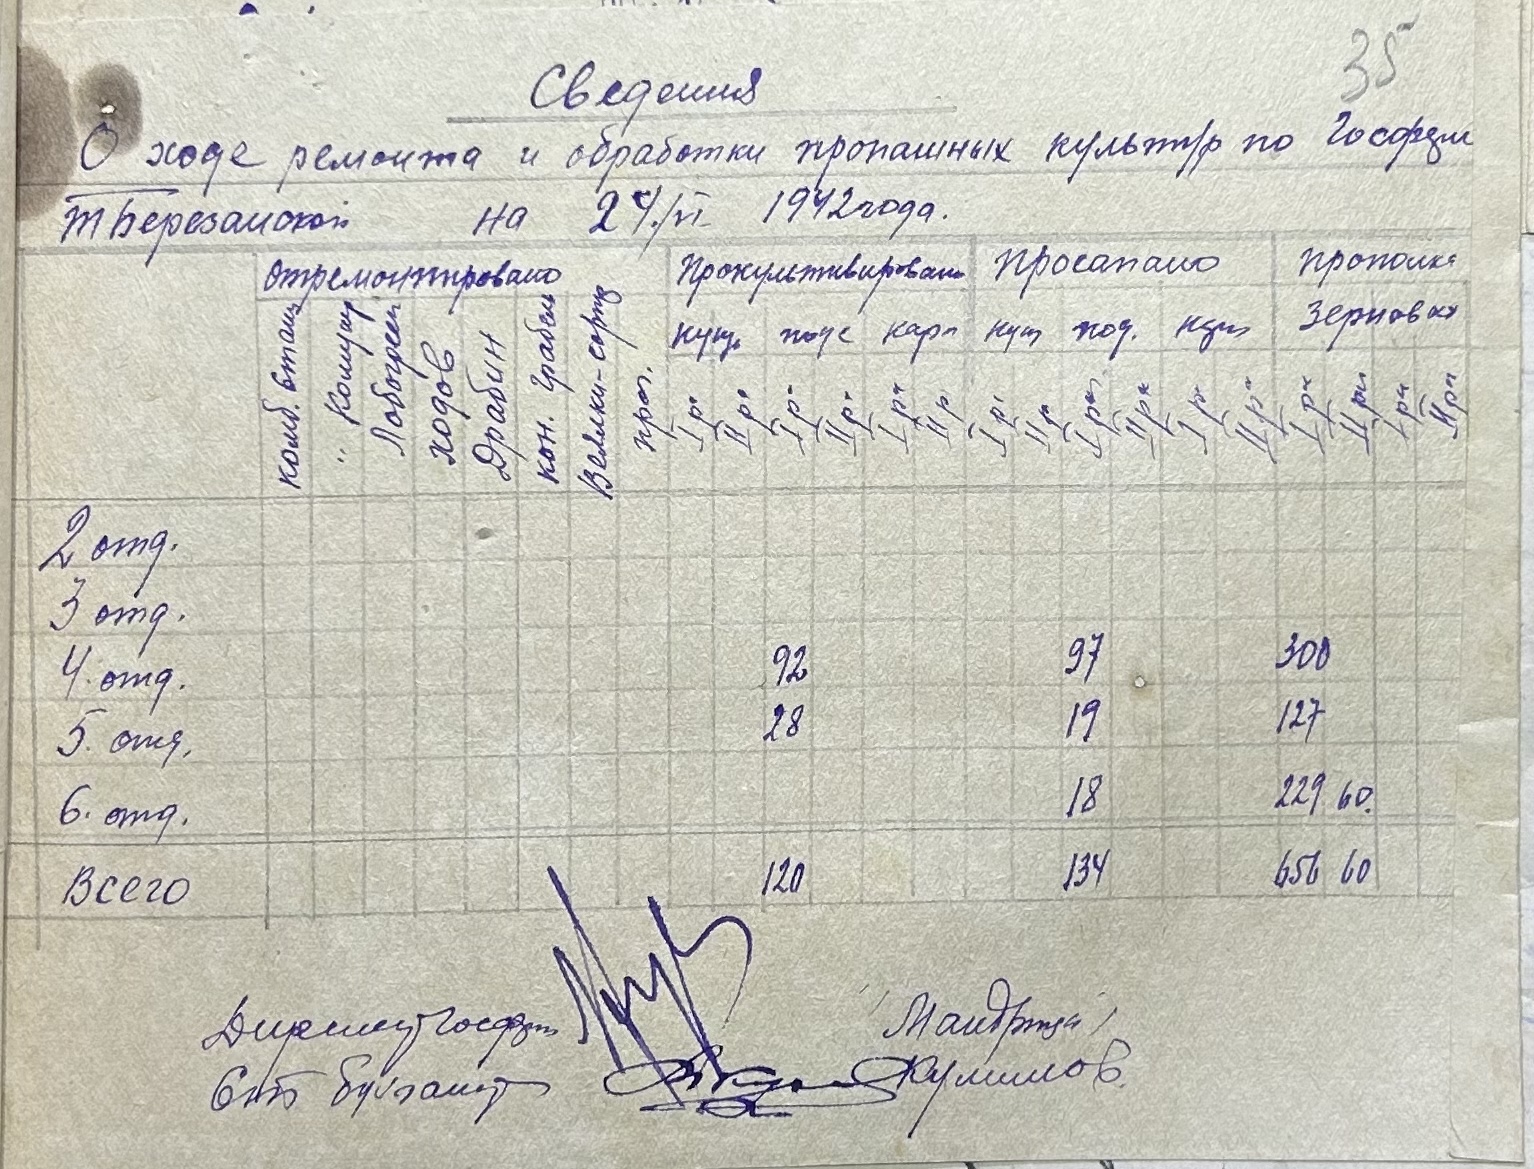 35
Сведения
О ходе ремонта и обработки пропашных культур по Госфрм
Березанской на 24/VI 1942 года.
Отремонтировано Прокультивировано Просапано прополка
зерновых
комб. Лобогреек ходов Драбин кон. Грабель Веялки-сорт
кукур подс кап под.
I р. II р. I р. II р. I р. II р. I р. II р. I р. II р. I р. II р. I р. II р. I р. II р.
2 отд.
3 отд.
4. отд. 92 97 300
5. отд. 28 19 127
6. отд. 18 229 60.
Всего 120 134 656 60
Директ Госфрм
Ст бухгалт Куликов